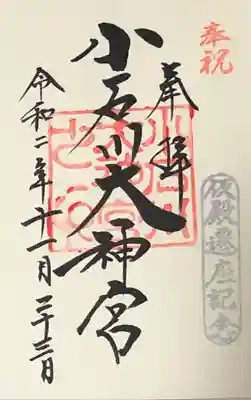 奉祝
奉拝
仮殿遷座記念
小石川大神宮
令和二年十一月二十三日